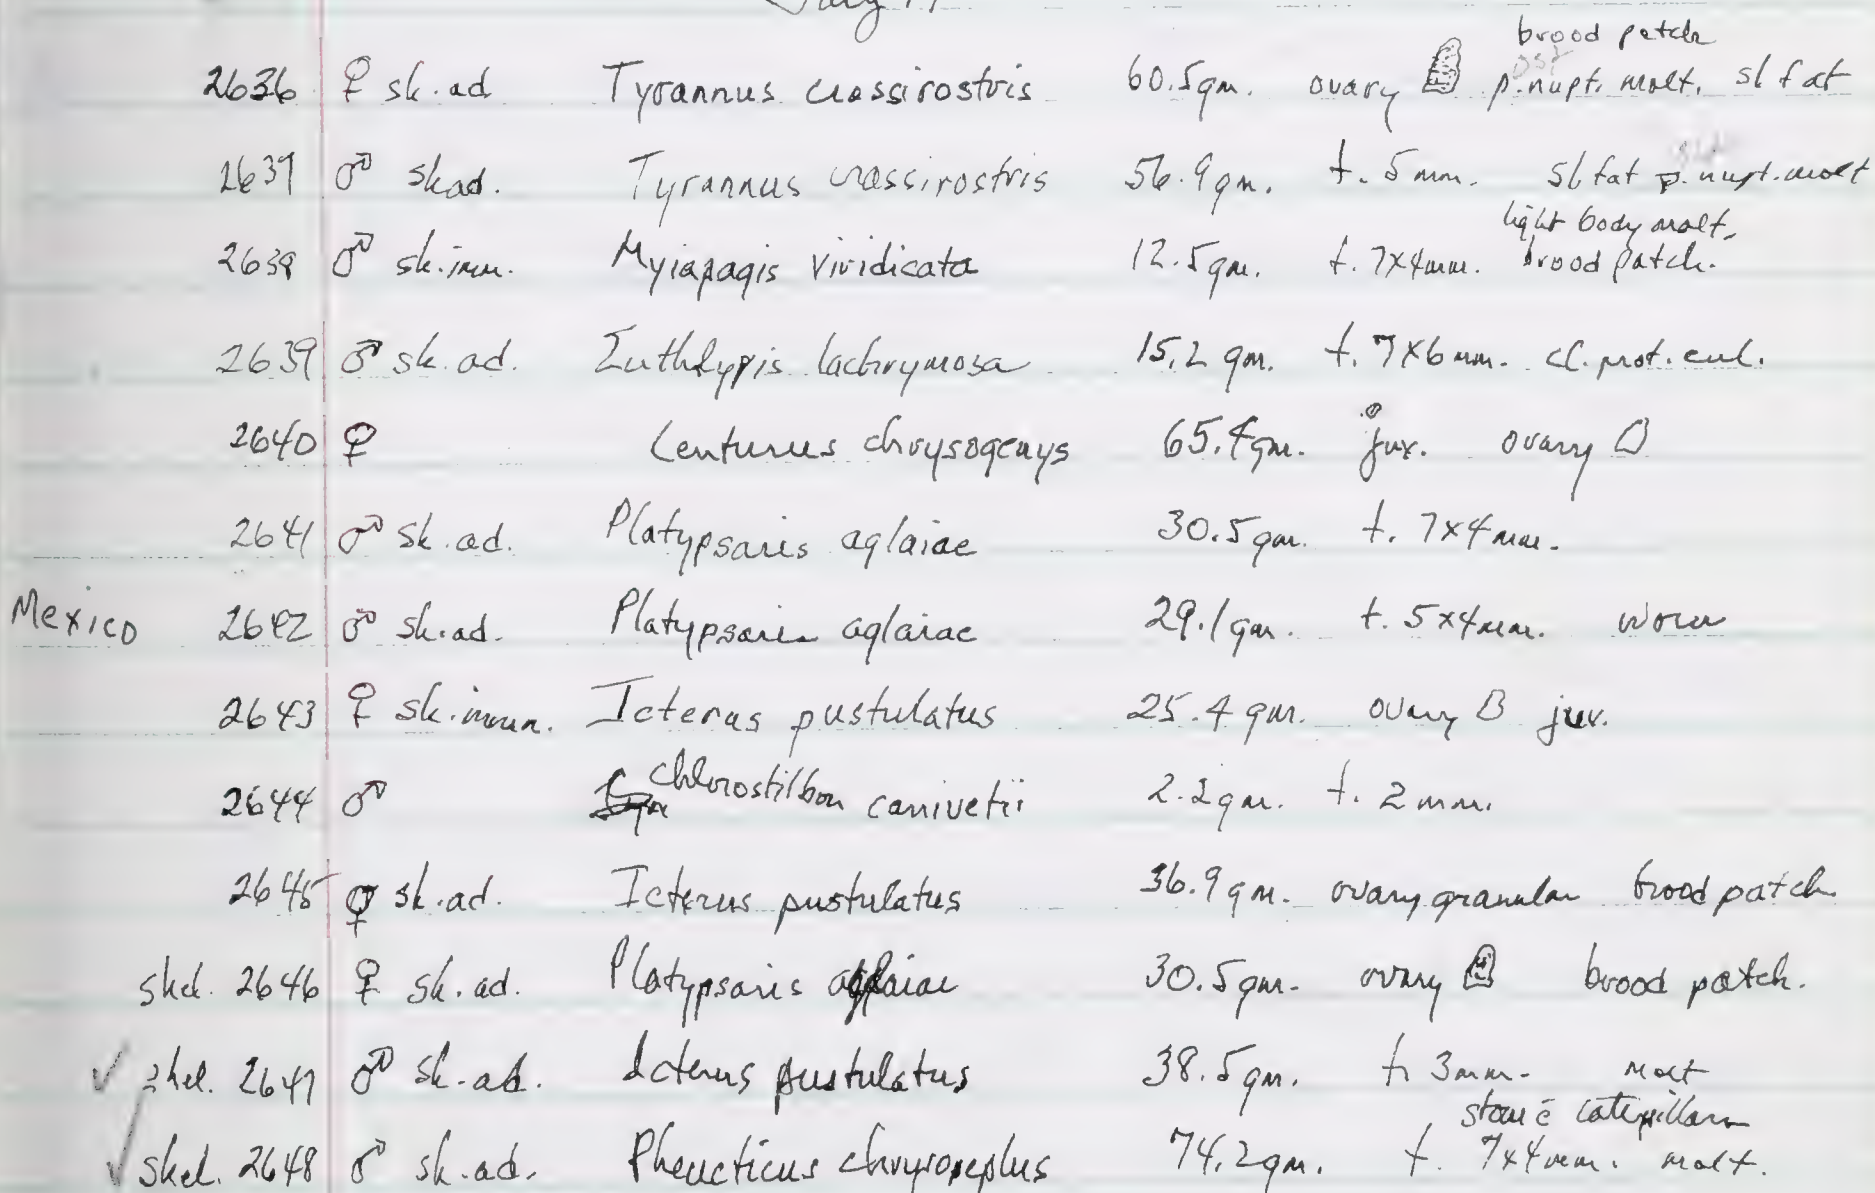 July
brood patch
2636 ♀ sk. ad. Tyrannus crassirostris 60.5 gm. ovary post p. nupt. molt. sl fat
2637 ♂ sk ad. Tyrannus crassirostris 56.9 gm. t. 5 mm. sl fat p. nupt. molt
light body molt,
2638 ♂ sk. imm. Myiapagis viridicata 12.5 gm. t. 7x4 mm. brood patch.
2639 ♂ sk. ad. Euthlypis lachrymosa 15.2 gm. t. 7x6 mm. cl. prot. enl.
2640 ♀ Centurus chrysogenys 65.4 gm. juv. ovary
2641 ♂ sk. ad. Platypsaris aglaiae 30.5 gm. t. 7x4 mm.
Mexico 2642 ♂ sk. ad. Platypsaris aglaiae 29.1 gm. t. 5x4 mm. worn
2643 ♀ sk. imm. Icterus pustulatus 25.4 gm. ovary juv.
2644 ♂ Chlorostilbon canivetii 2.2 gm. t. 2 mm.
2645 ♀ sk. ad. Icterus pustulatus 36.9 gm. ovary granular brood patch
skel. 2646 ♀ sk. ad. Platypsaris aglaiae 30.5 gm. ovary brood patch.
✓ skel. 2647 ♂ sk. ad. Icterus pustulatus 38.5 gm. t. 3 mm. molt
stom c̄ caterpillars
✓ skel. 2648 ♂ sk. ad. Pheucticus chrysopeplus 74.2 gm. t. 7x4 mm. molt.